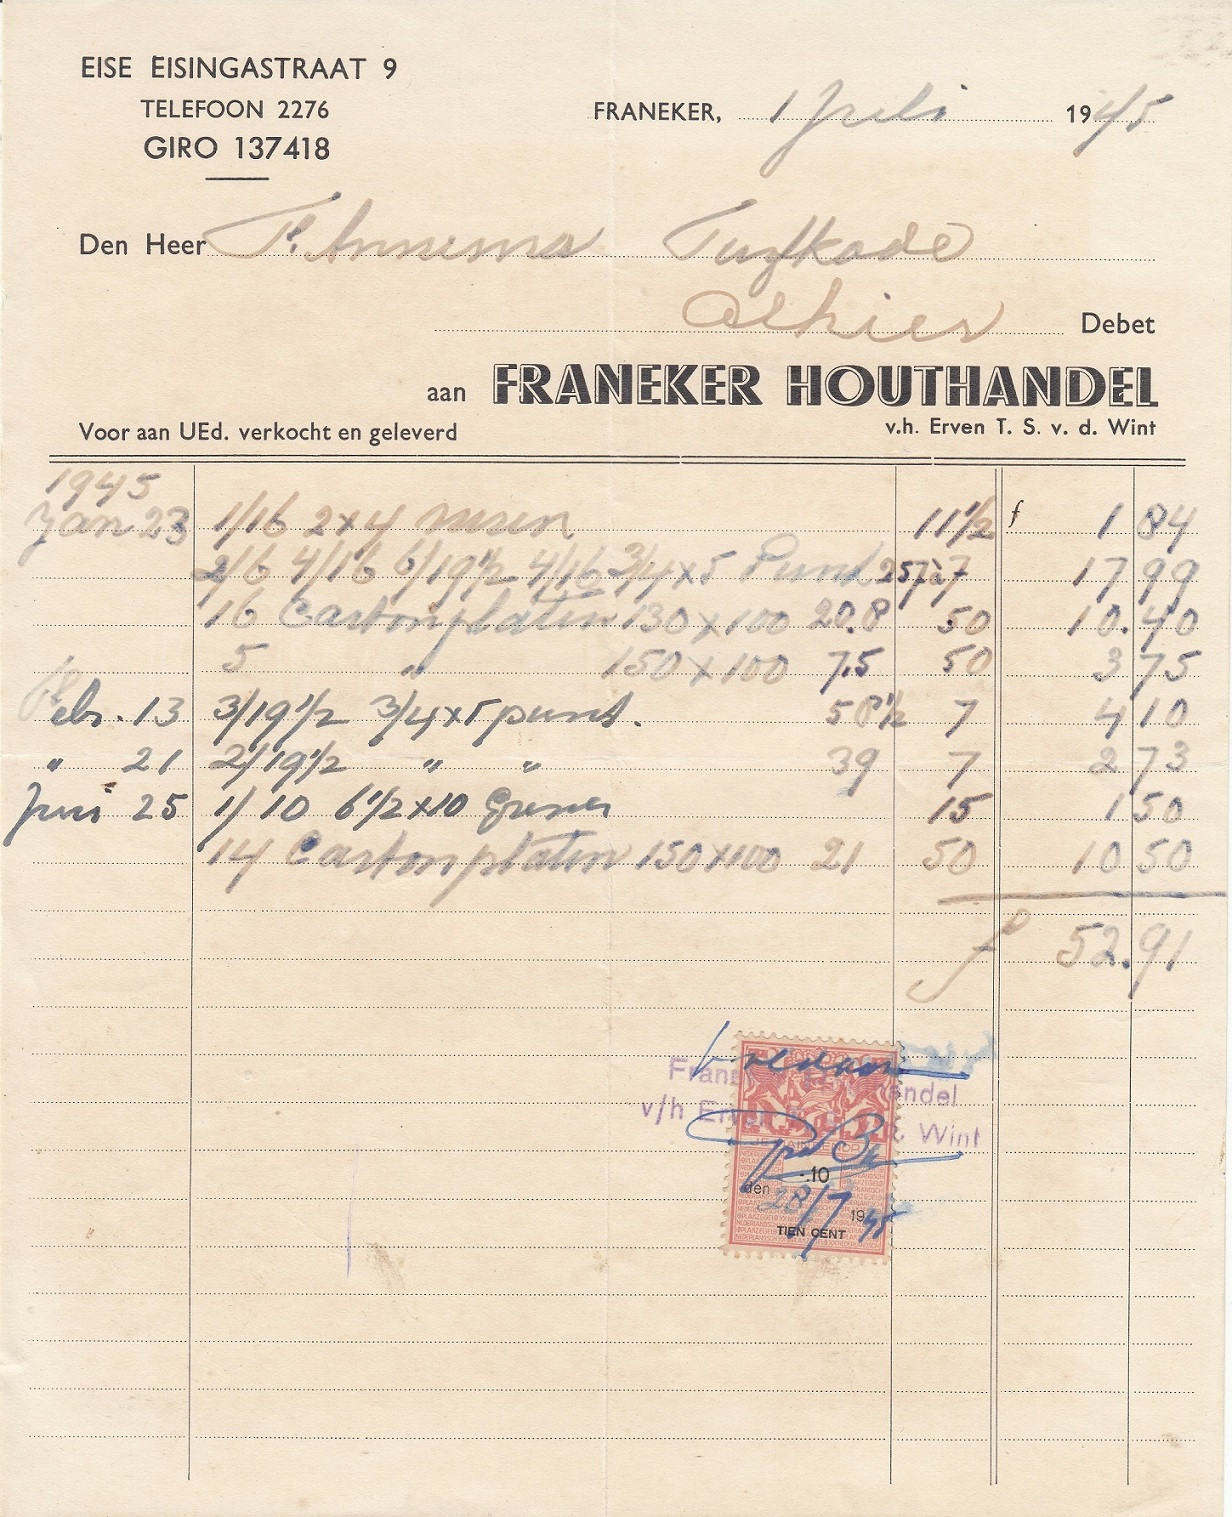 EISE EISINGASTRAAT 9
TELEFOON 2276
GIRO 137418
FRANEKER, 1 Juli 1945
Den Heer P. Annema Turfkade
Alhier Debet
aan FRANEKER HOUTHANDEL
Voor aan UEd. verkocht en geleverd v.h. Erven T. S. v. d. Wint
1945
Jan 23 1/16 2x4 11½ f 1 84
2/6 4/16 6/19½ 4/16 3/4x5 257 à 7 17 99
16 Cartonplaten 130 x 100 20.8 50 10.40
5 " 150 x 100 7,5 50 3 75
Febr. 13 3/19½ 3/4x5 punt. 58½ 7 4 10
" 21 2/19½ " " 39 7 2 73
Juni 25 1/10 6½x10 Grenen 15 1 50
14 Cartonplaten 150x100 21 50 10 50
f 52.91
Voldaan
Franeker Houthandel
v/h Erven Wint
-.10
den 28/7 1945
TIEN CENT